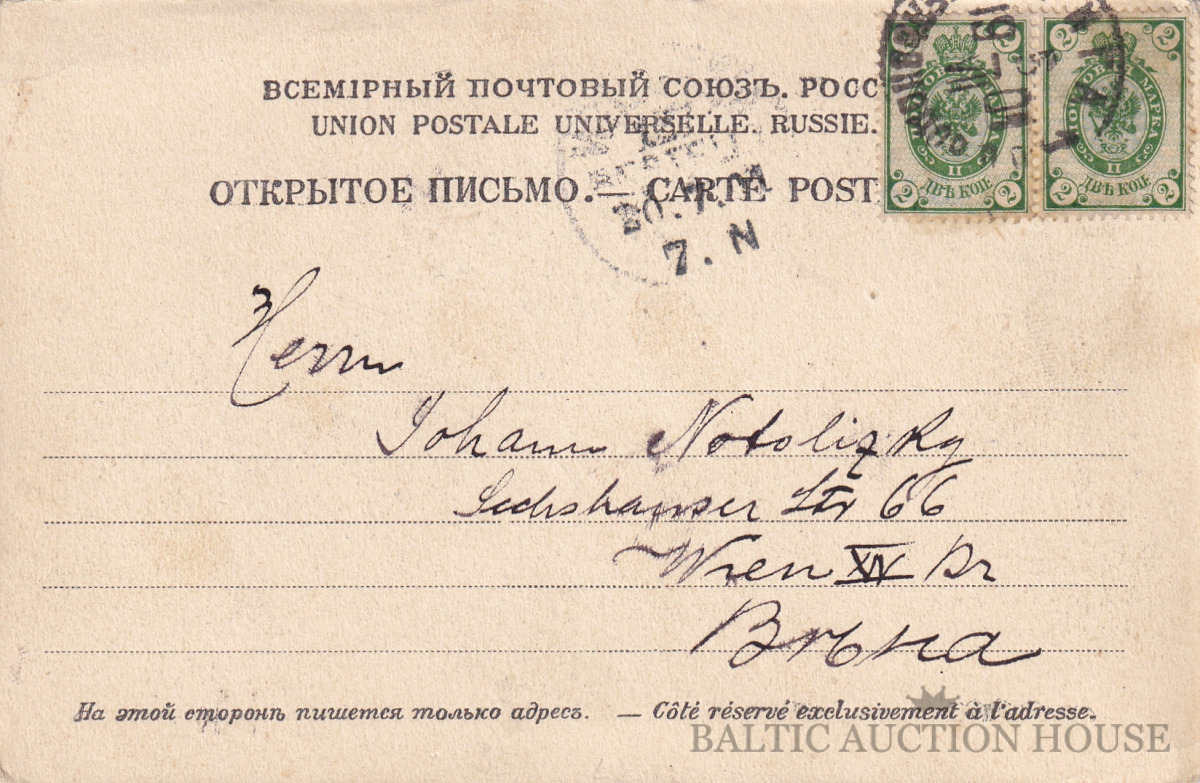 ВСЕМІРНЫЙ ПОЧТОВЫЙ СОЮЗЪ. РОСС
UNION POSTALE UNIVERSELLE. RUSSIE.
ОТКРЫТОЕ ПИСЬМО. — CARTE POST
2 2 2 2
ПОЧТОВАЯ МАРКА ПОЧТОВАЯ МАРКА
II II
2 ДВѢ КОП. 2 2 ДВѢ КОП. 2
20.7.01
7. N
Herrn
Johann Notolizky
Sechshauser Str 66
Wien XIV Bz
Вѣна
На этой сторонѣ пишется только адресъ. — Côté réservé exclusivement à l'adresse.
BALTIC AUCTION HOUSE